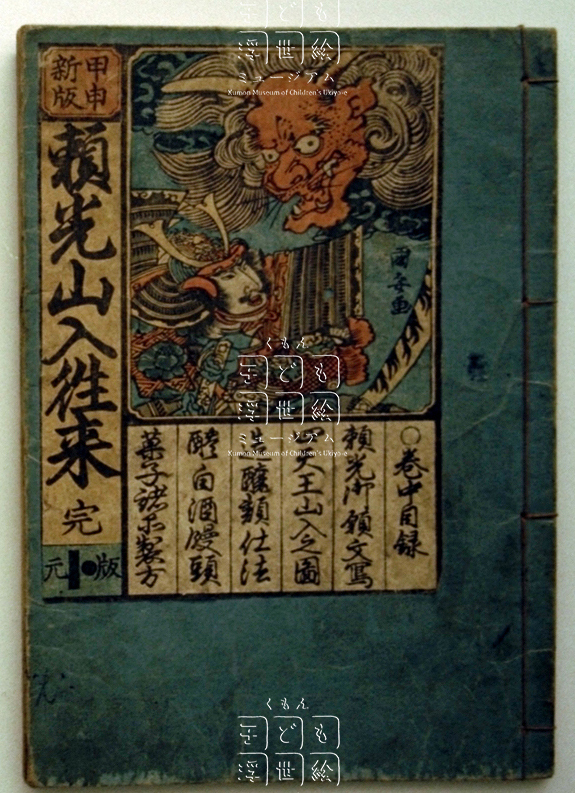 甲申
新版
頼光山入往来
完
元
版
國安画
○巻中目録
頼光御願文写
四天王山入之圖
造醸類仕法
醴白酒饅頭
菓子諸不製方
くもん
子ども
浮世絵
ミュージアム
Kumon Museum of Children's Ukiyo-e
くもん
子ども
浮世絵
ミュージアム
Kumon Museum of Children's Ukiyo-e
くもん
子ども
浮世絵